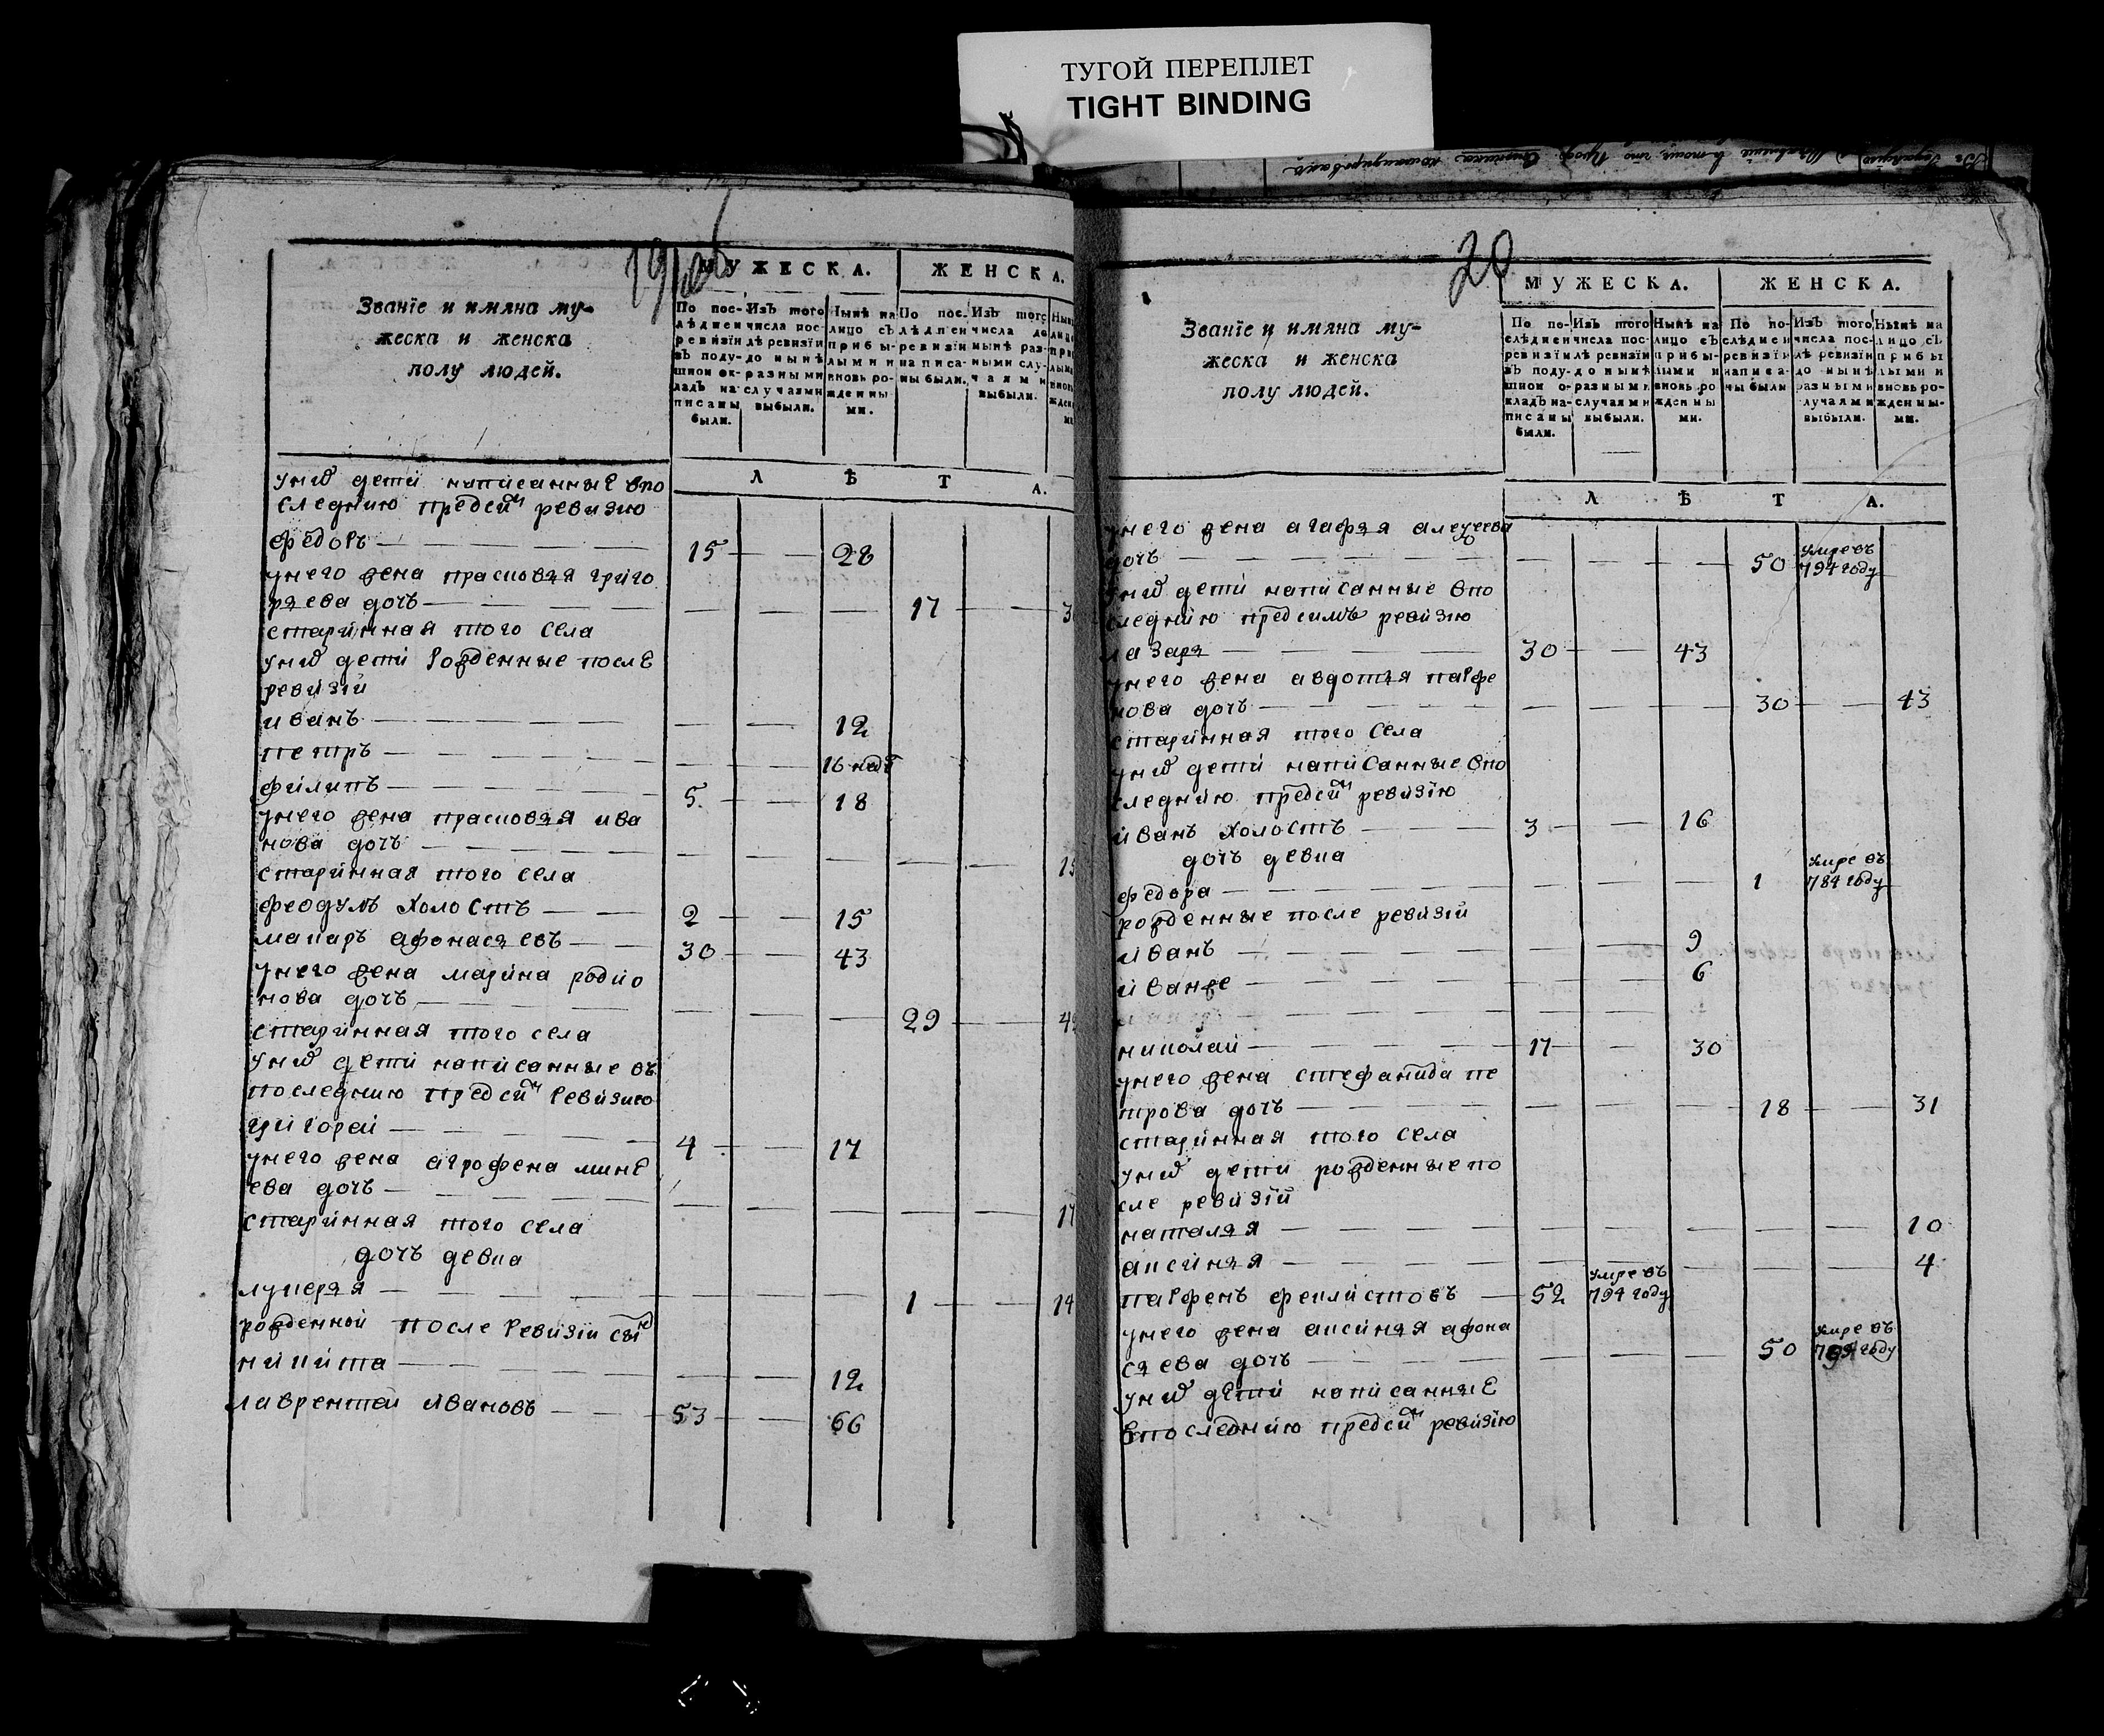 ТУГОЙ ПЕРЕПЛЕТ
TIGHT BINDING
19 об
Званїе и имяна му-
жеска и женска
полу людей.
МУЖЕСКА.
ЖЕНСКА.
По пос-
лѣдней
ревизїи
въ поду-
шной ок-
ладъ на-
писаны
были.
Изъ того
числа пос-
лѣ ревизїи
до нынѣ
разными
случаями
выбыли.
Нынѣ на
лицо съ
прибы-
лыми и
вновь ро-
жденны-
ми.
По пос-
лѣдней
ревизїи
написа-
ны были.
Изъ того
числа до
нынѣ раз-
ными слу-
чаями
выбыли.
Л Ѣ Т А.
у них дети написанные впо
следнию пред сим ревизию
федоръ — 15 — 28
у него жена прасковья григо
рьева дочь — 17
старинная того села
у них дети рожденные после
ревизїй
иванъ — 12
петръ — 16 недѣ
филипъ — 5 — 18
у него жена прасковья ива
нова дочь
старинная того села
феодулъ холостъ — 2 — 15
макаръ афонасьевъ — 30 — 43
у него жена марина родио
нова дочь — 29
старинная того села
у них дети написанные въ
последнию пред сим ревизию
григорей — 4 — 17
у него жена агрофена мине
ева дочь — 17
старинная того села
дочь девка
лукерья — 1 — 14
рожденной после ревизїи сын
никита — 12
лаврентей ивановъ — 53 — 66
20
Званїе и имяна му-
жеска и женска
полу людей.
МУЖЕСКА.
ЖЕНСКА.
По по-
слѣдней
ревизїи
въ поду-
шной о-
кладъ на-
писаны
были.
Изъ того
числа пос-
лѣ ревизїи
до нынѣ
разными
случаями
выбыли.
Нынѣ на
лицо съ
прибы-
лыми и
вновь ро
жденны
ми.
По по-
слѣдней
ревизїи
написа-
ны были
Изъ того
числа пос-
лѣ ревизїи
до нынѣ
разными
случаями
выбыли.
Нынѣ на
лицо съ
прибы
лыми и
вновь ро-
жденны-
ми.
Л Ѣ Т А.
у него жена агафья алексеева
дочь — 50 умре въ 794 году
у них дети написанные впо
следнию пред симъ ревизию
лазарь — 30 — 43
у него жена авдотья парфе
нова дочь — 30 — 43
старинная того села
у них дети написанные впо
следнию пред сим ревизїю
иванъ холостъ — 3 — 16
дочь девка
федора — 1 умре въ 784 году
рожденные после ревизїй
иванъ — 9
иванже — 6
николай — 17 — 30
у него жена стефанида пе
трова дочь — 18 — 31
старинная того села
у них дети рожденные по
сле ревизїй
наталья — 10
аксинья — 4
парфенъ феклистовъ — 52 умре въ 794 году
у него жена аксинья афона
сьева дочь — 50 умре въ
у них дети написанные
в последнию пред сим ревизїю